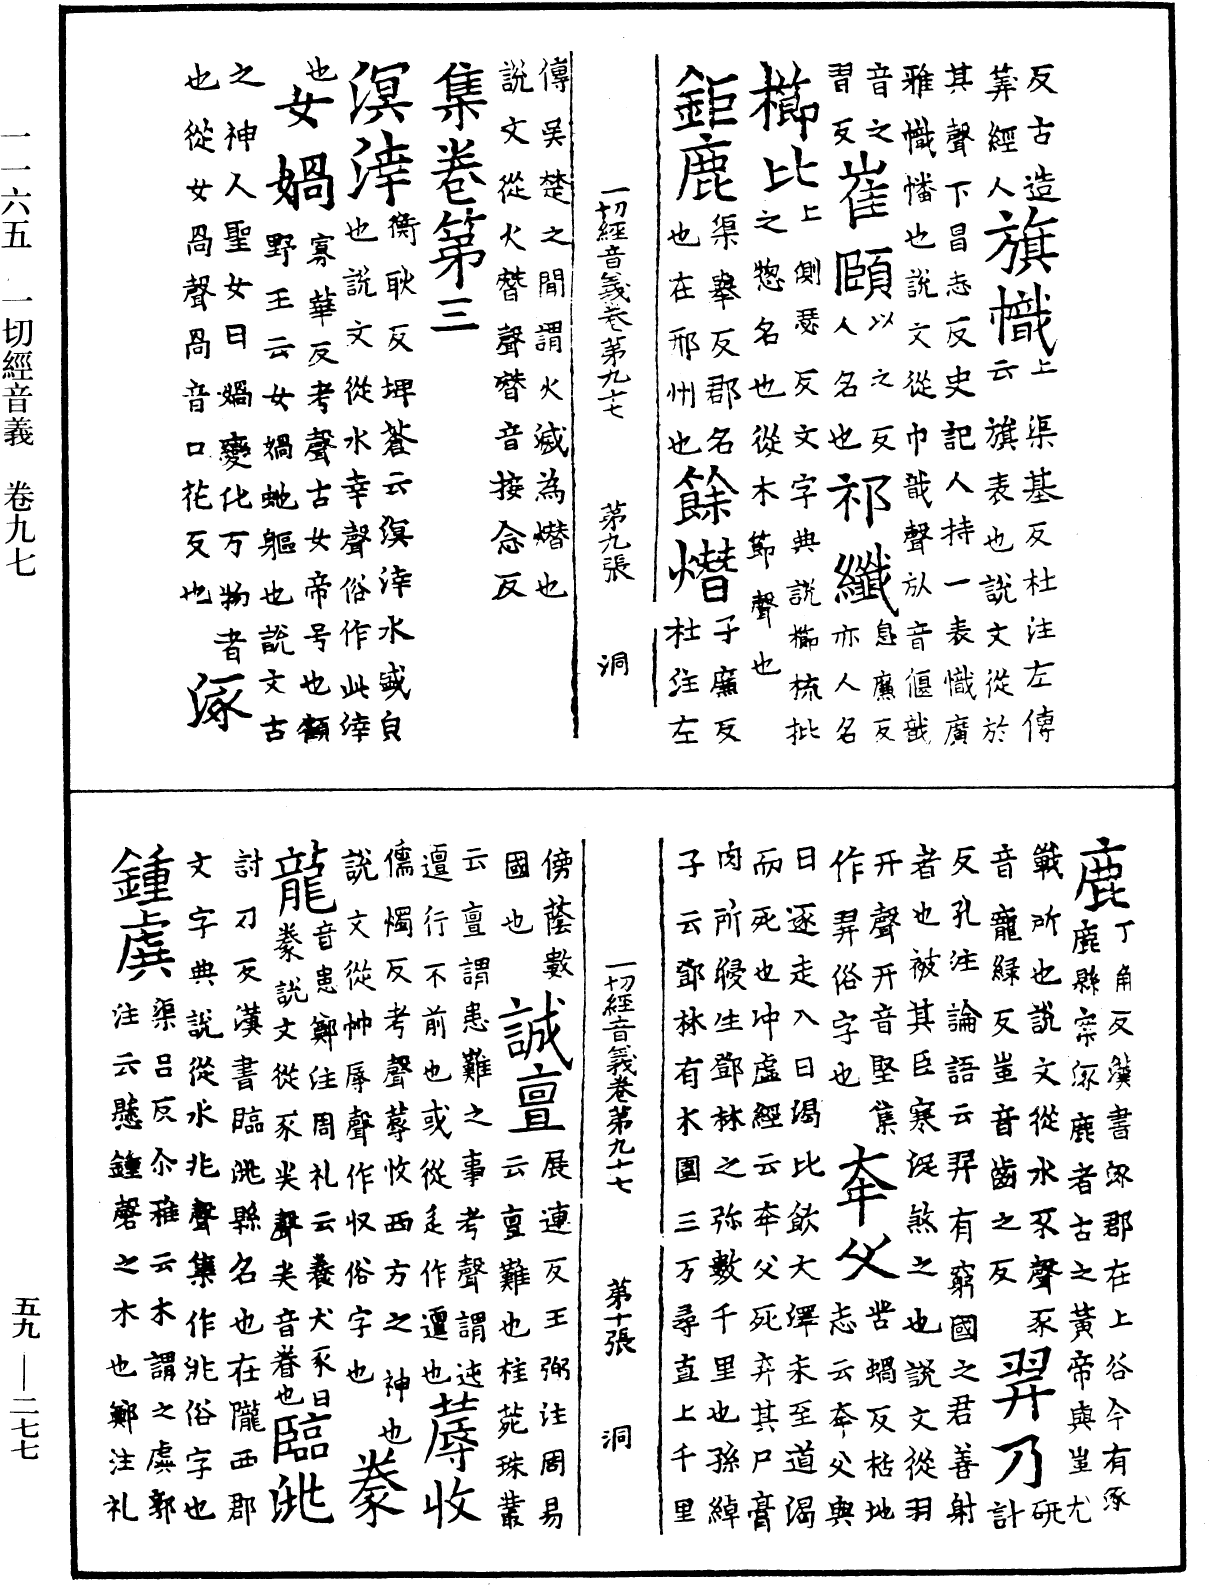 反古造
葬經人旗幟上渠基反杜注左傳
云旗表也說文從於
其聲下昌志反史記人持一表幟廣
雅幟幡也說文從巾戠聲㫃音偃戠
音之
習反崔頤以之反
人名也祁纖息廉反
亦人名
櫛比上側瑟反文字典說櫛梳批
之揔名也從木節聲也
鉅鹿渠舉反郡名
也在邢州也餘熸子廉反
杜注左
一切經音義卷第九十七　第九張　洞
傳吳楚之間謂火滅為熸也
說文從火朁聲朁音接念反
集卷第三
溟涬衡耿反埤蒼云溟涬水盛皃
也說文從水幸聲俗作此涬
也女媧寡華反考聲古女帝号也顧
野王云女媧虵軀也說文古
之神人聖女曰媧變化万物者
也從女咼聲咼音口花反也涿
鹿丁角反漢書涿郡在上谷今有涿
鹿縣案涿鹿者古之黃帝與蚩尤
戰所也說文從水豖聲豖
音寵綠反蚩音齒之反羿乃研計
反孔注論語云羿有窮國之君善射
者也被其臣寒浞煞之也說文從羽
幵聲幵音堅集
作羿俗字也夲父芭蝸反枯地
志云夲父與
日逐走入日渴比飲大澤未至道渴
而死也冲虛經云夲父死弃其尸膏
肉所𣹰生鄧林之弥數千里也孫綽
子云鄧林有木圍三万尋直上千里
一切經音義卷第九十七　第十張　洞
傍蔭數
國也誠亶展連反王弼注周易
云亶難也桂菀珠叢
云亶謂患難之事考聲謂迍
邅行不前也或從辵作邅也蓐收
儒燭反考聲蓐收西方之神也
說文從艸辱聲作収俗字也豢
龍音患鄭注周礼云養犬豕曰
豢說文從豕𢍏聲𢍏音眷也臨洮
討刀反漢書臨洮縣名也在隴西郡
文字典說從水兆聲集作洮俗字也
鍾虡渠呂反尒雅云木謂之虡郭
注云懸鍾磬之木也鄭注礼
一一六五　一切經音義　卷九七
五九——二七七